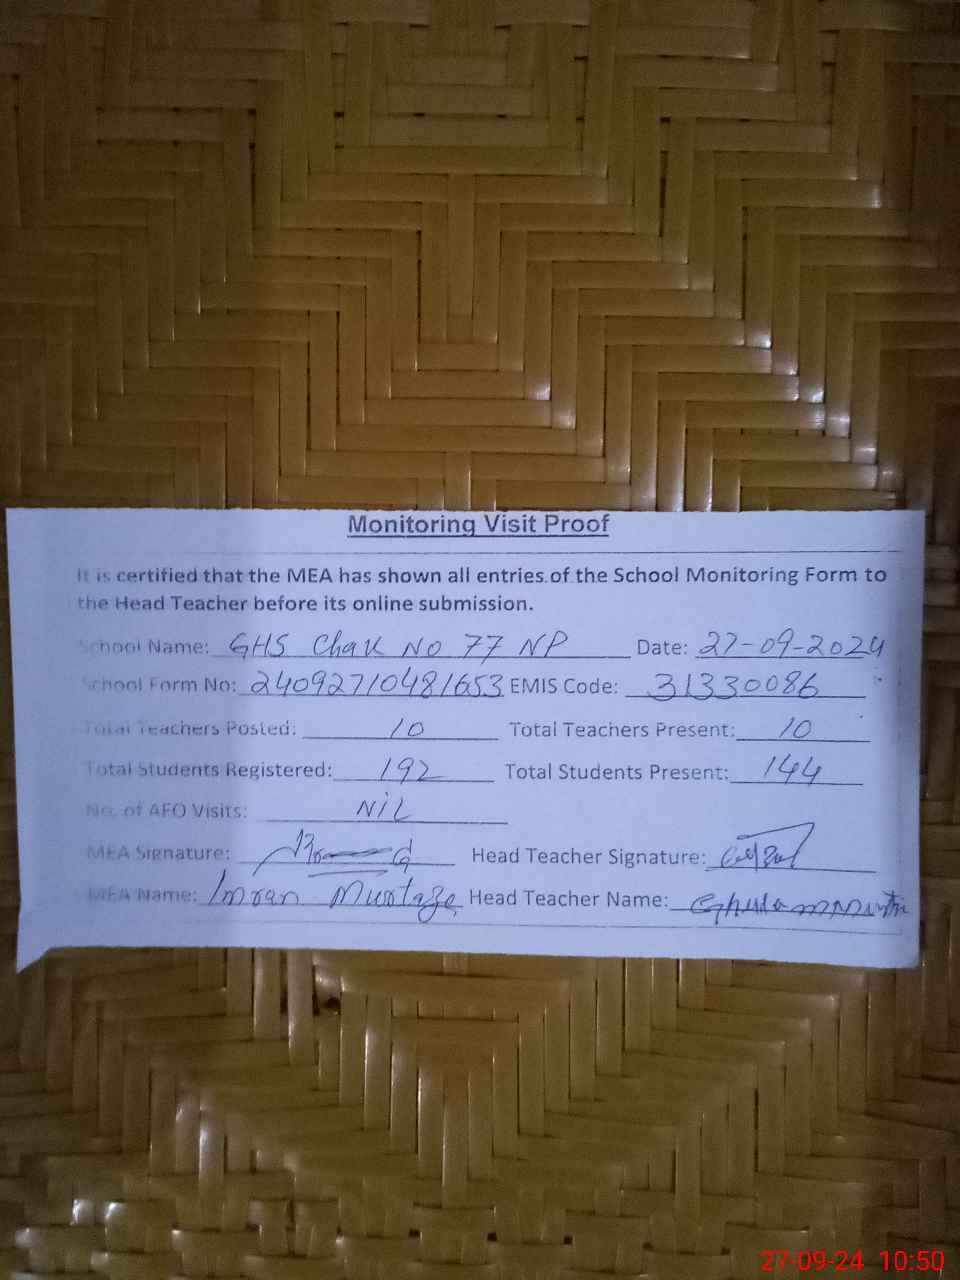 Monitoring Visit Proof
It is certified that the MEA has shown all entries of the School Monitoring Form to
the Head Teacher before its online submission.
School Name: GHS Chak No 77 NP Date: 27-09-2024
School Form No: 24092710481653 EMIS Code: 31330086
Total Teachers Posted: 10 Total Teachers Present: 10
Total Students Registered: 192 Total Students Present: 144
No. of AFO Visits: NiL
MEA Signature: Head Teacher Signature:
MEA Name: Imran Murtaza Head Teacher Name: Ghulam
27-09-24 10:50